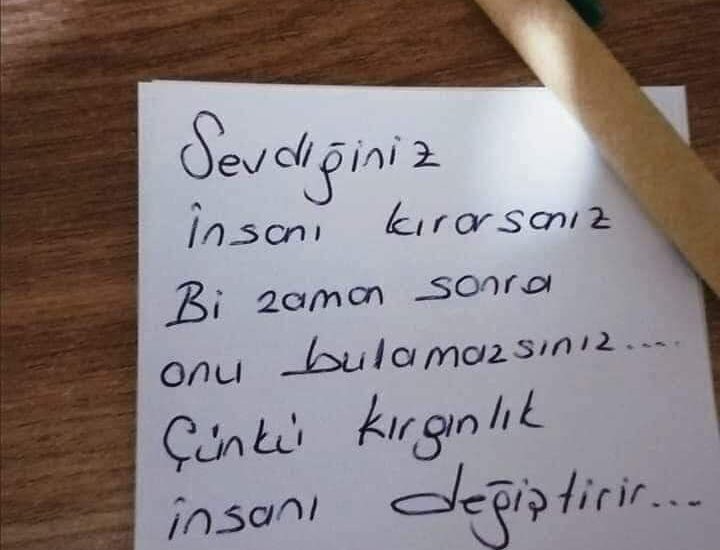 Sevdiğiniz
insanı kırarsanız
Bi zaman sonra
onu bulamazsınız....
Çünkü kırgınlık
insanı değiştirir...